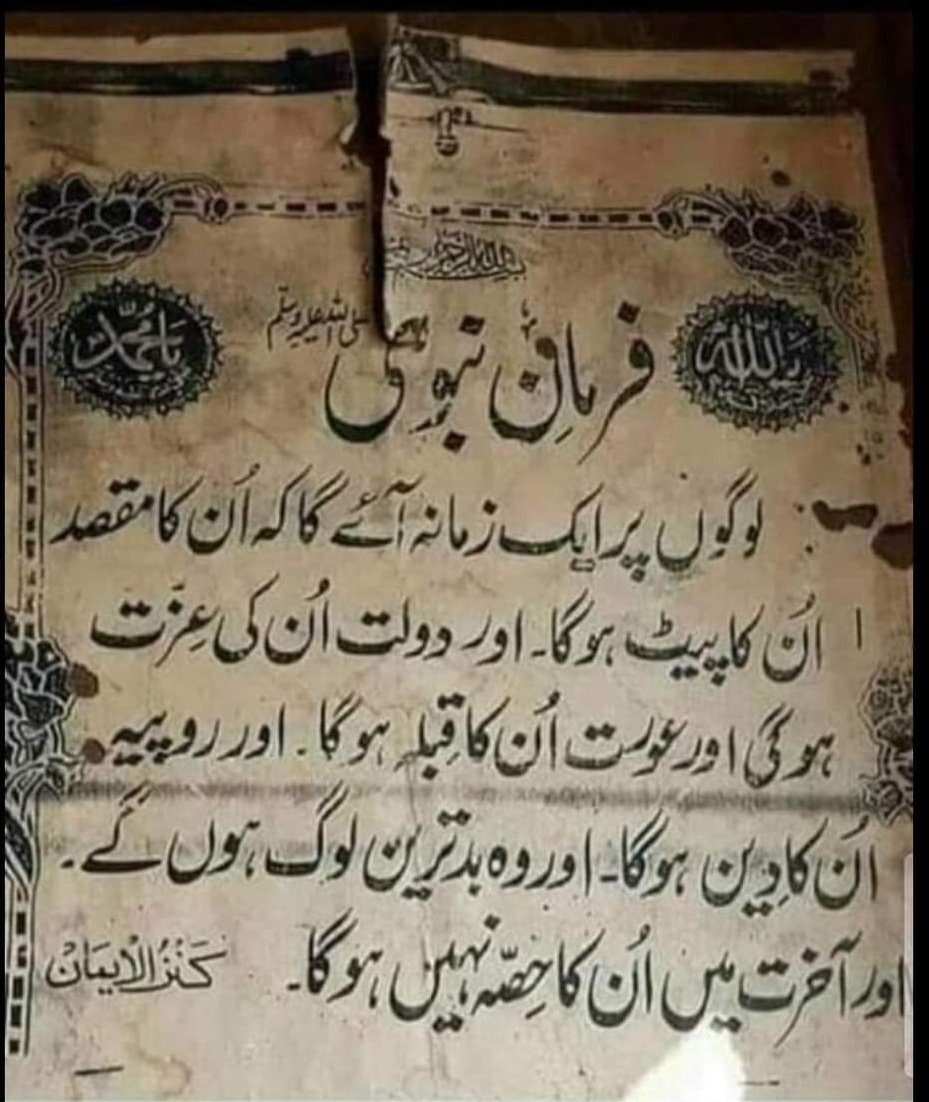 بسم اللہ الرحمن الرحیم
یا اللہ
یا محمد
فرمانِ نبوی صلی اللہ علیہ وسلم
لوگوں پر ایک زمانہ آئے گا کہ اُن کا مقصد
اُن کا پیٹ ہوگا۔ اور دولت اُن کی عِزّت
ہوگی اور عورت اُن کا قِبلہ ہوگا۔ اور روپیہ
اُن کا دِین ہوگا۔ اور وہ بدترین لوگ ہوں گے۔
اور آخرت میں اُن کا حِصّہ نہیں ہوگا۔
کَنْزُالْاِیمَانْ